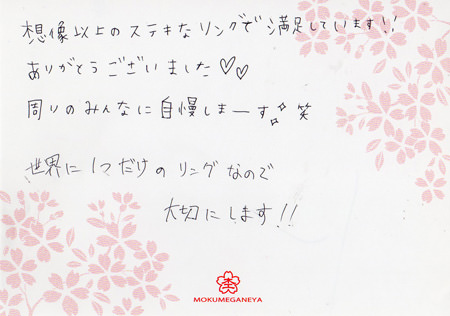 想像以上のステキなリングで満足しています!!
ありがとうございました♡♡
周りのみんなに自慢しまーす 笑
世界に1つだけのリングなので
大切にします!!
MOKUMEGANEYA